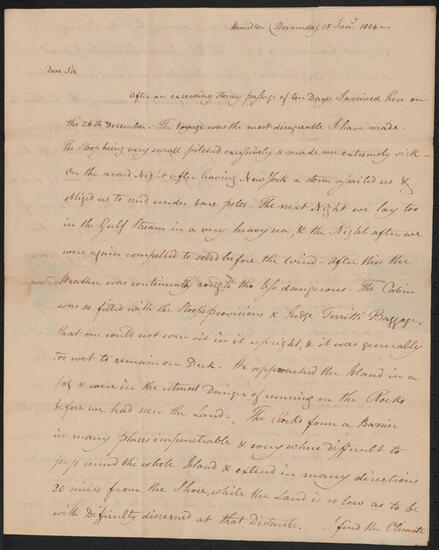 Hamilton (Bermuda) 15 Jany. 1804 -
Dear Sir
After an exceeding stormy passage of ten Days I arrived here on
the 26th December - The Voyage was the most disagreable I have made -
the Sloop being very small pitched excessively & made me extremely sick -
On the second Night after leaving New York a storm assailed us &
obliged us to scud under bare poles - The next Night we lay too
in the Gulf Stream in a very heavy sea, & the Night after we
were again compelled to scud before the Wind - After this the
Weather was continually rough tho less dangerous - The Cabin
was so filled with the Sloops provisions & Judge Territts Baggage,
that one could not even sit in it upright, & it was generally
too wet to remain on Deck. We approached the Island in a
fog & were in the utmost Danger of running on the Rocks
before we had seen the Land - The Rocks form a Barrier
in many places impenetrable & every where difficult to
pass round the whole Island & extend in many directions
20 miles from the Shore, while the Land is so low as to be
with Difficulty discerned at that Distance. I find the Climate